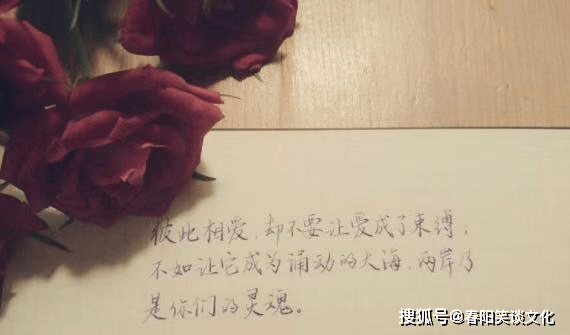 彼此相爱,却不要让爱成了束缚;
不如让它成为涌动的大海,两岸乃
是你们的灵魂。
搜狐号@春阳笑谈文化